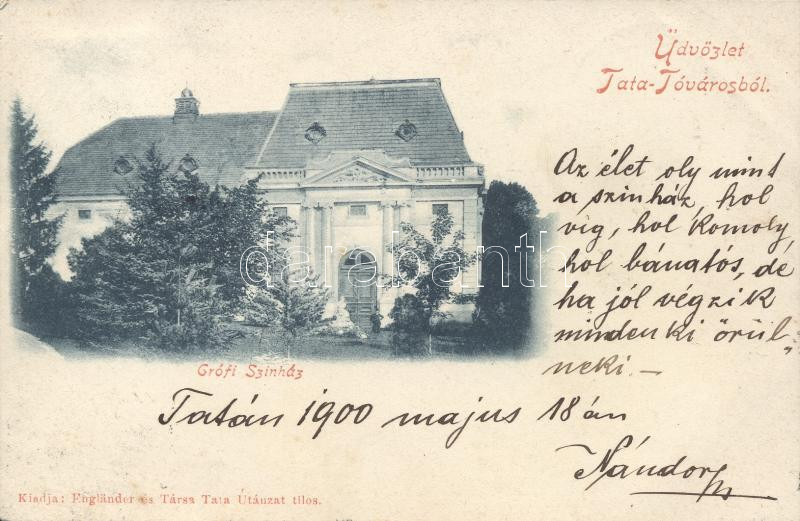 Üdvözlet
Tata-Tóvárosból.
Az élet oly mint
a szinház, hol
vig, hol komoly,
hol bánatós, de
ha jól végzik
mindenki örül-
neki. —
darabanth
Grófi Szinház
Tatán 1900 május 18án
Nándor
Kiadja: Engländer és Társa Tata Útánzat tilos.